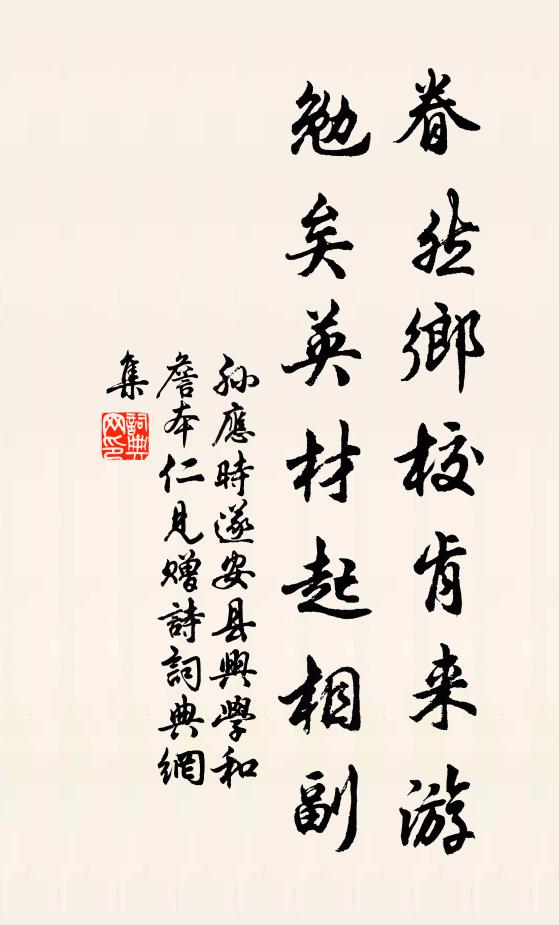 眷然鄉校肯来游
勉矣英材起相副
孙應時遂安县興學和
詹本仁見贈詩詞典網
集
詞典网印